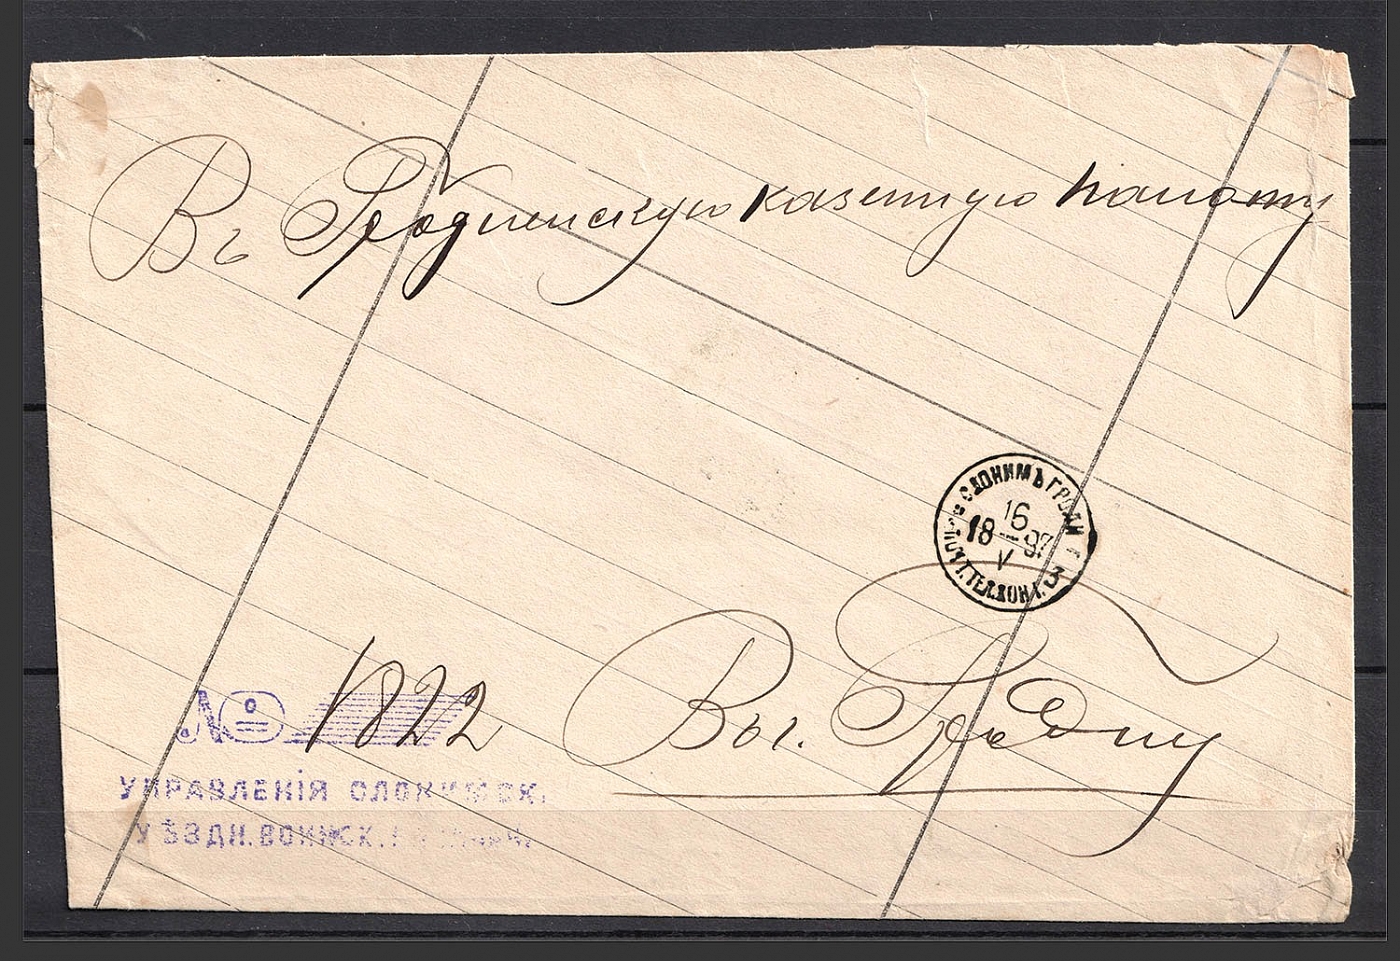 Въ Гродненскую казенную палату
СЛОНИМЪ ГРОДН. Г.
16
18—97
V
ПОЧТ. ТЕЛ. КОН. 3
Въ г. Гродну
№ 1822
УПРАВЛЕНІЯ СЛОНИМСК.
УѢЗДН. ВОИНСК.